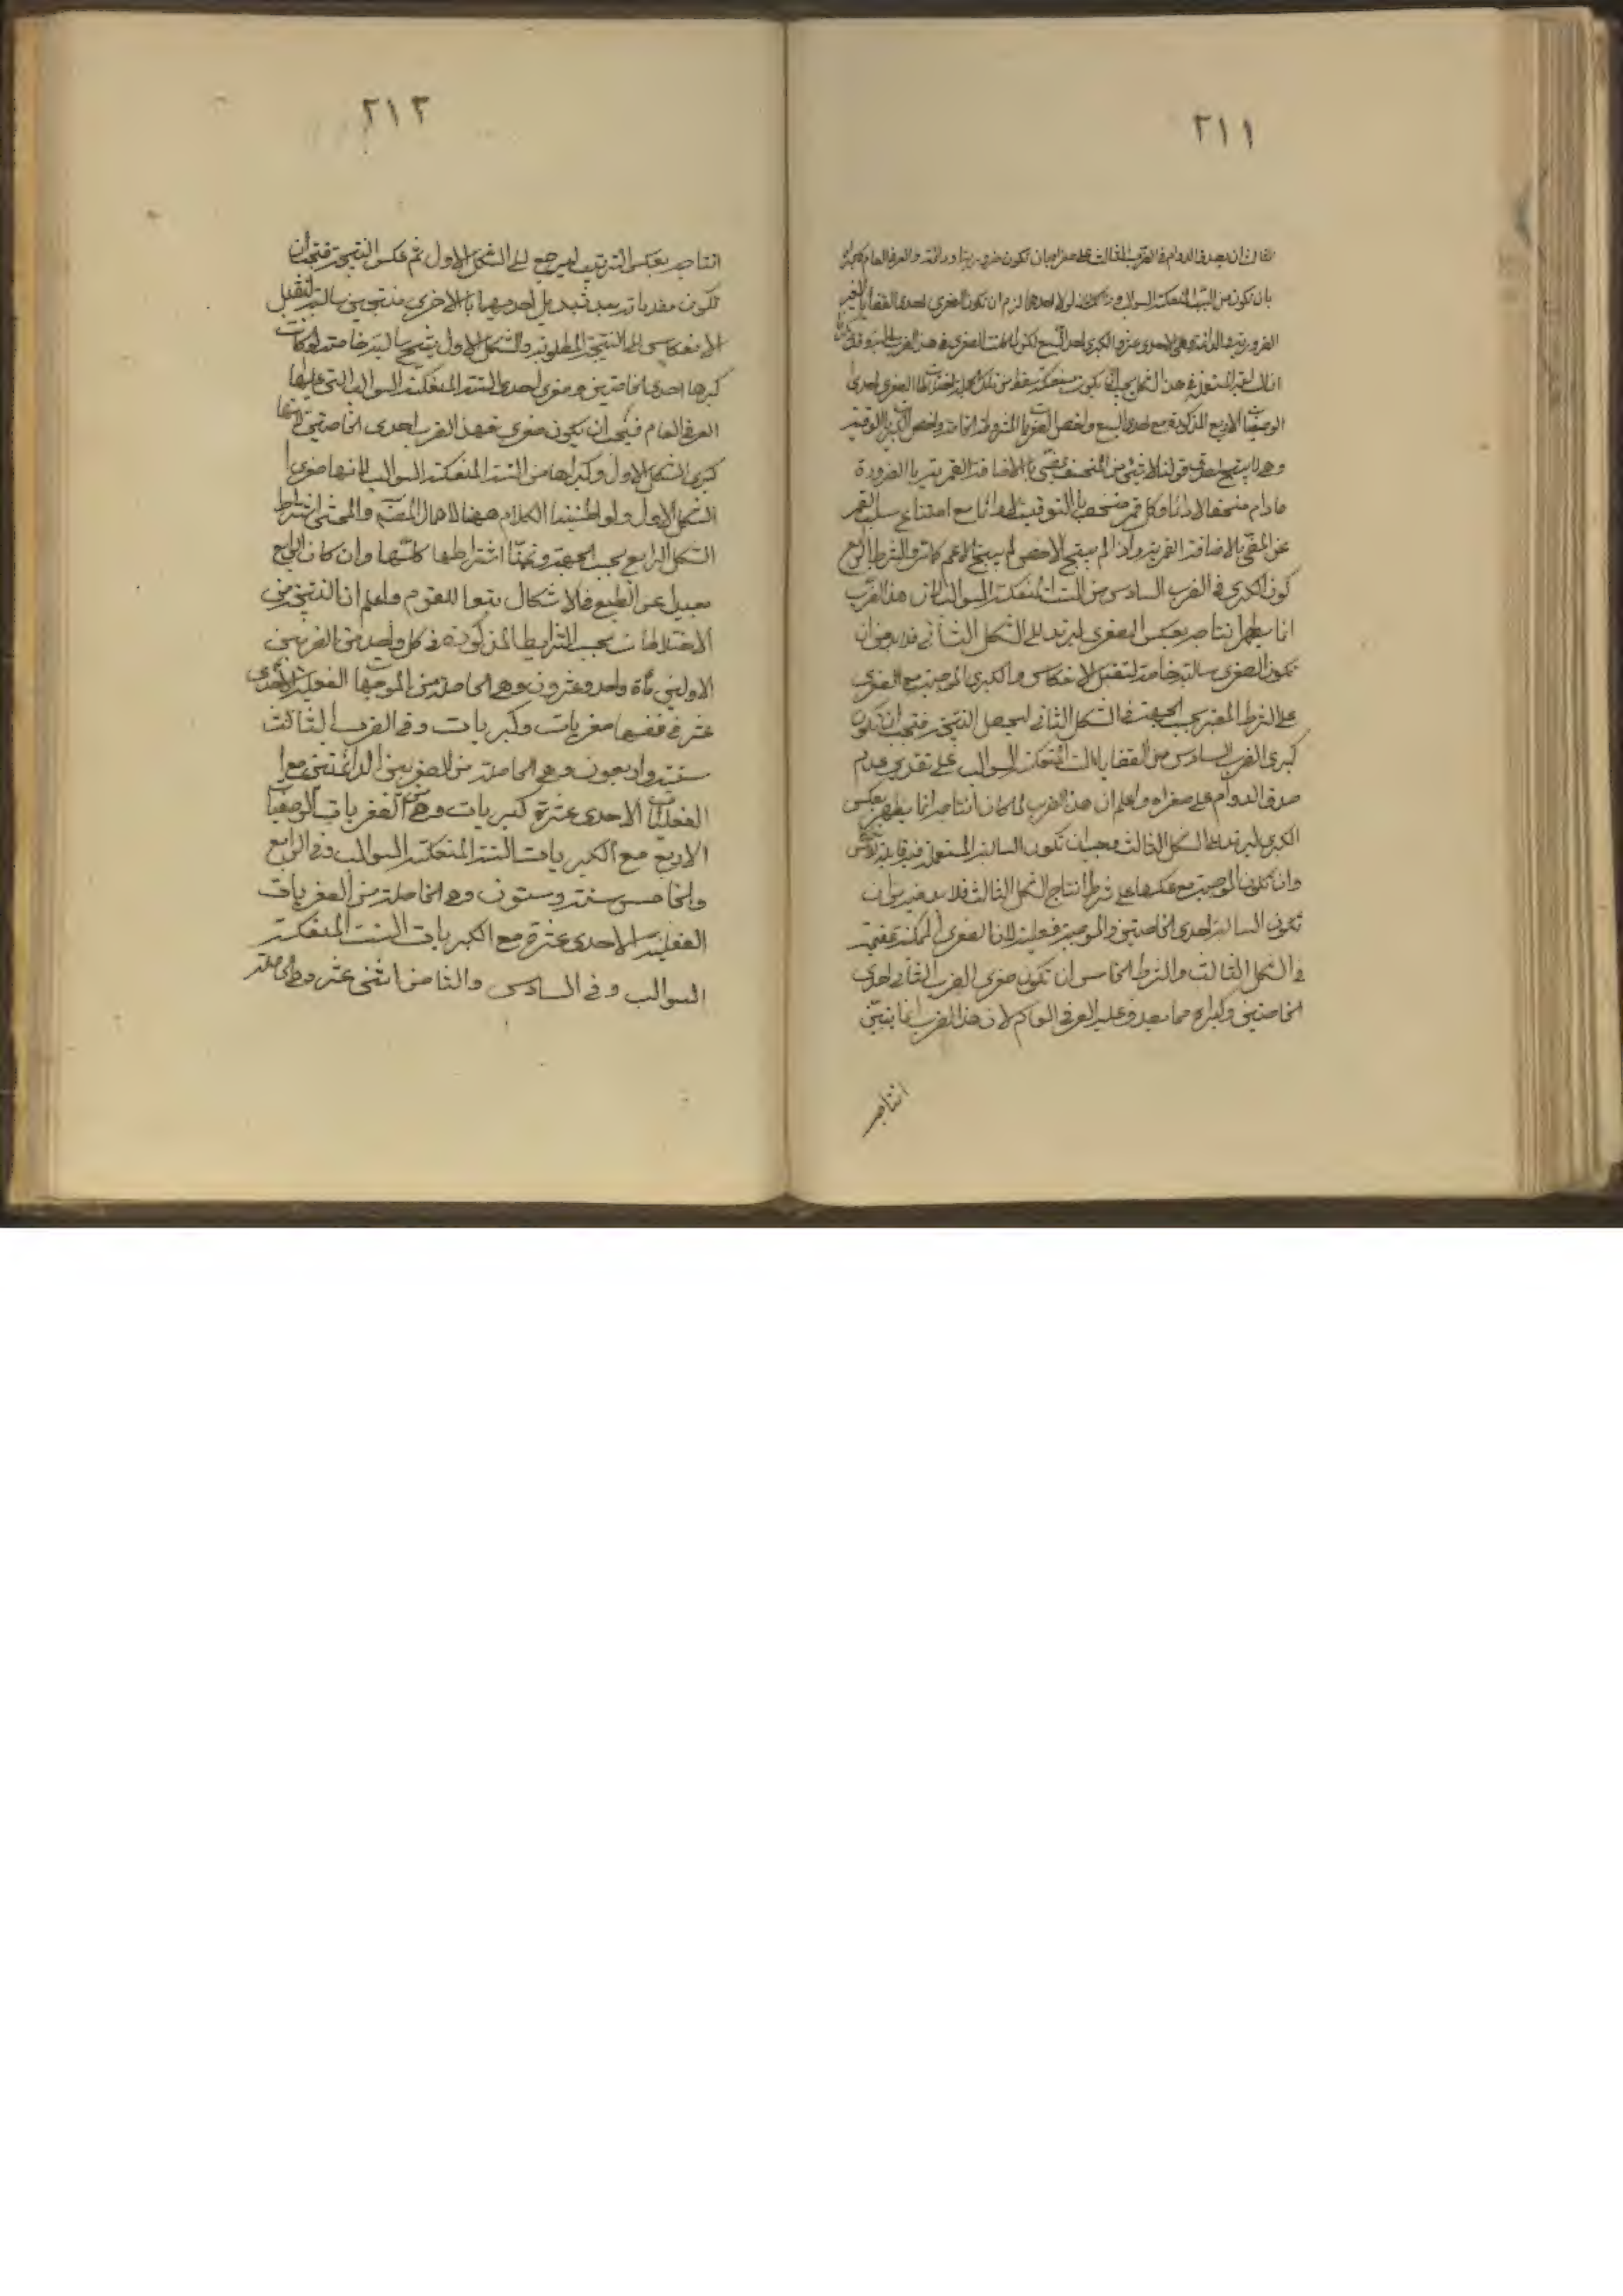 ٢١١
الثالث ان يصدق الدوام في الضرب الثالث على صغراه بان تكون ضرورية او دائمة والعرفي العام على كبراه
بان تكون من الست المنعكسة السوالب لانه لولا احدهما لزم ان تكون الصغرى احدى القضايا الغير
الضرورية والدائمة وهي الاحدى عشرة والكبرى احدى السبع لكن لما كانت الصغرى في هذا الضرب سالبة وقد
السالبة المستعملة في هذا الشكل يجب ان تكون منعكسة سقط من تلك الجملة اختلاط الصغرى احدى
الوصفيات الاربع المذكورة مع احدى السبع واخص الصغريات المشروطة الخاصة واخص الكبريات الوقتية
وهي لا ينتج لصدق قولنا لا شيء من المنخسف بمضيء بالاضافة القمرية بالضرورة
ما دام منخسفا لا دائما وكل قمر منخسف بالتوقيت لا دائما مع امتناع سلب القمر
عن المضيء بالاضافة القمرية واذا لم ينتج الاخص لم ينتج الاعم كما مر والشرط الرابع
كون الكبرى في الضرب السادس من الست المنعكسة السوالب لان هذا الضرب
انما يظهر انتاجه بعكس الصغرى ليرتد الى الشكل الثاني فلا بد من ان
تكون الصغرى سالبة خاصة لتقبل الانعكاس والكبرى الموجبة مع الصغرى
على الشرط المعتبر بحسب الجهة في الشكل الثاني ليحصل النتيجة فيجب ان تكون
كبرى الضرب السادس من القضايا الست المنعكسة السوالب على تقدير عدم
صدق الدوام على صغراه واعلم ان هذا الضرب لما كان انتاجه انما يظهر بعكس
الكبرى ليرتد الى الشكل الثالث وجب ان تكون السالبة المستعملة فيه قابلة للانعكاس
وان تكون الموجبة مع عكسها على شرط انتاج الشكل الثالث فلا بد فيه من ان
تكون السالبة احدى الخاصتين والموجبة فعلية لان الصغرى الممكنة عقيمة
في الشكل الثالث والشرط الخامس ان تكون صغرى الضرب الثامن احدى
الخاصتين وكبراه مما يصدق عليه العرفي العام لان هذا الضرب انما يتبين
انتاجه
٢١٢
انتاجه بعكس الترتيب ليرجع الى الشكل الاول ثم عكس النتيجة فيجب ان
تكون مقدماته بعد تبديل احديهما بالاخرى منتجتين سالبة لتقبل
الانعكاس الى النتيجة المطلوبة والشكل الاول ينتج سالبة خاصة لو كانت
كبرها احدى الخاصتين وصغرى احدى الستة المنعكسة السوالب التي عليها
العرفي العام فيجب ان يكون صغرى هذا الضرب احدى الخاصتين لانها
كبرى الشكل الاول وكبراها من الستة المنعكسة السوالب لانها صغرى
الشكل الاول ولو اطنبنا الكلام ههنا لاهمال المقسم والمحشى اشتراط
الشكل الرابع بحسب الجهة ونحن اشتراطها كلتيها وان كان الرابع
بعيدا عن الطبع فلا اشكال تبعا للقوم واعلم ان النتيجة من
الاختلاطات بحسب الشرايط المذكورة في كل واحد من الضربين
الاولين مأة واحد وعشرون وهي الحاصلة من الموجبات الفعلية الاحدى
عشر في نفسها صغريات وكبريات وفي الضرب الثالث
ستة واربعون وهي الحاصلة من الصغريين الدائمتين مع
الفعليات الاحدى عشرة كبريات ومن الصغريات الوصفيات
الاربع مع الكبريات الستة المنعكسة السوالب وفي الرابع
والخامس ستة وستون وهي الحاصلة من الصغريات
الفعلية الاحدى عشرة مع الكبريات الست المنعكسة
السوالب وفي السادس والثامن اثنى عشر وهي الحاصلة